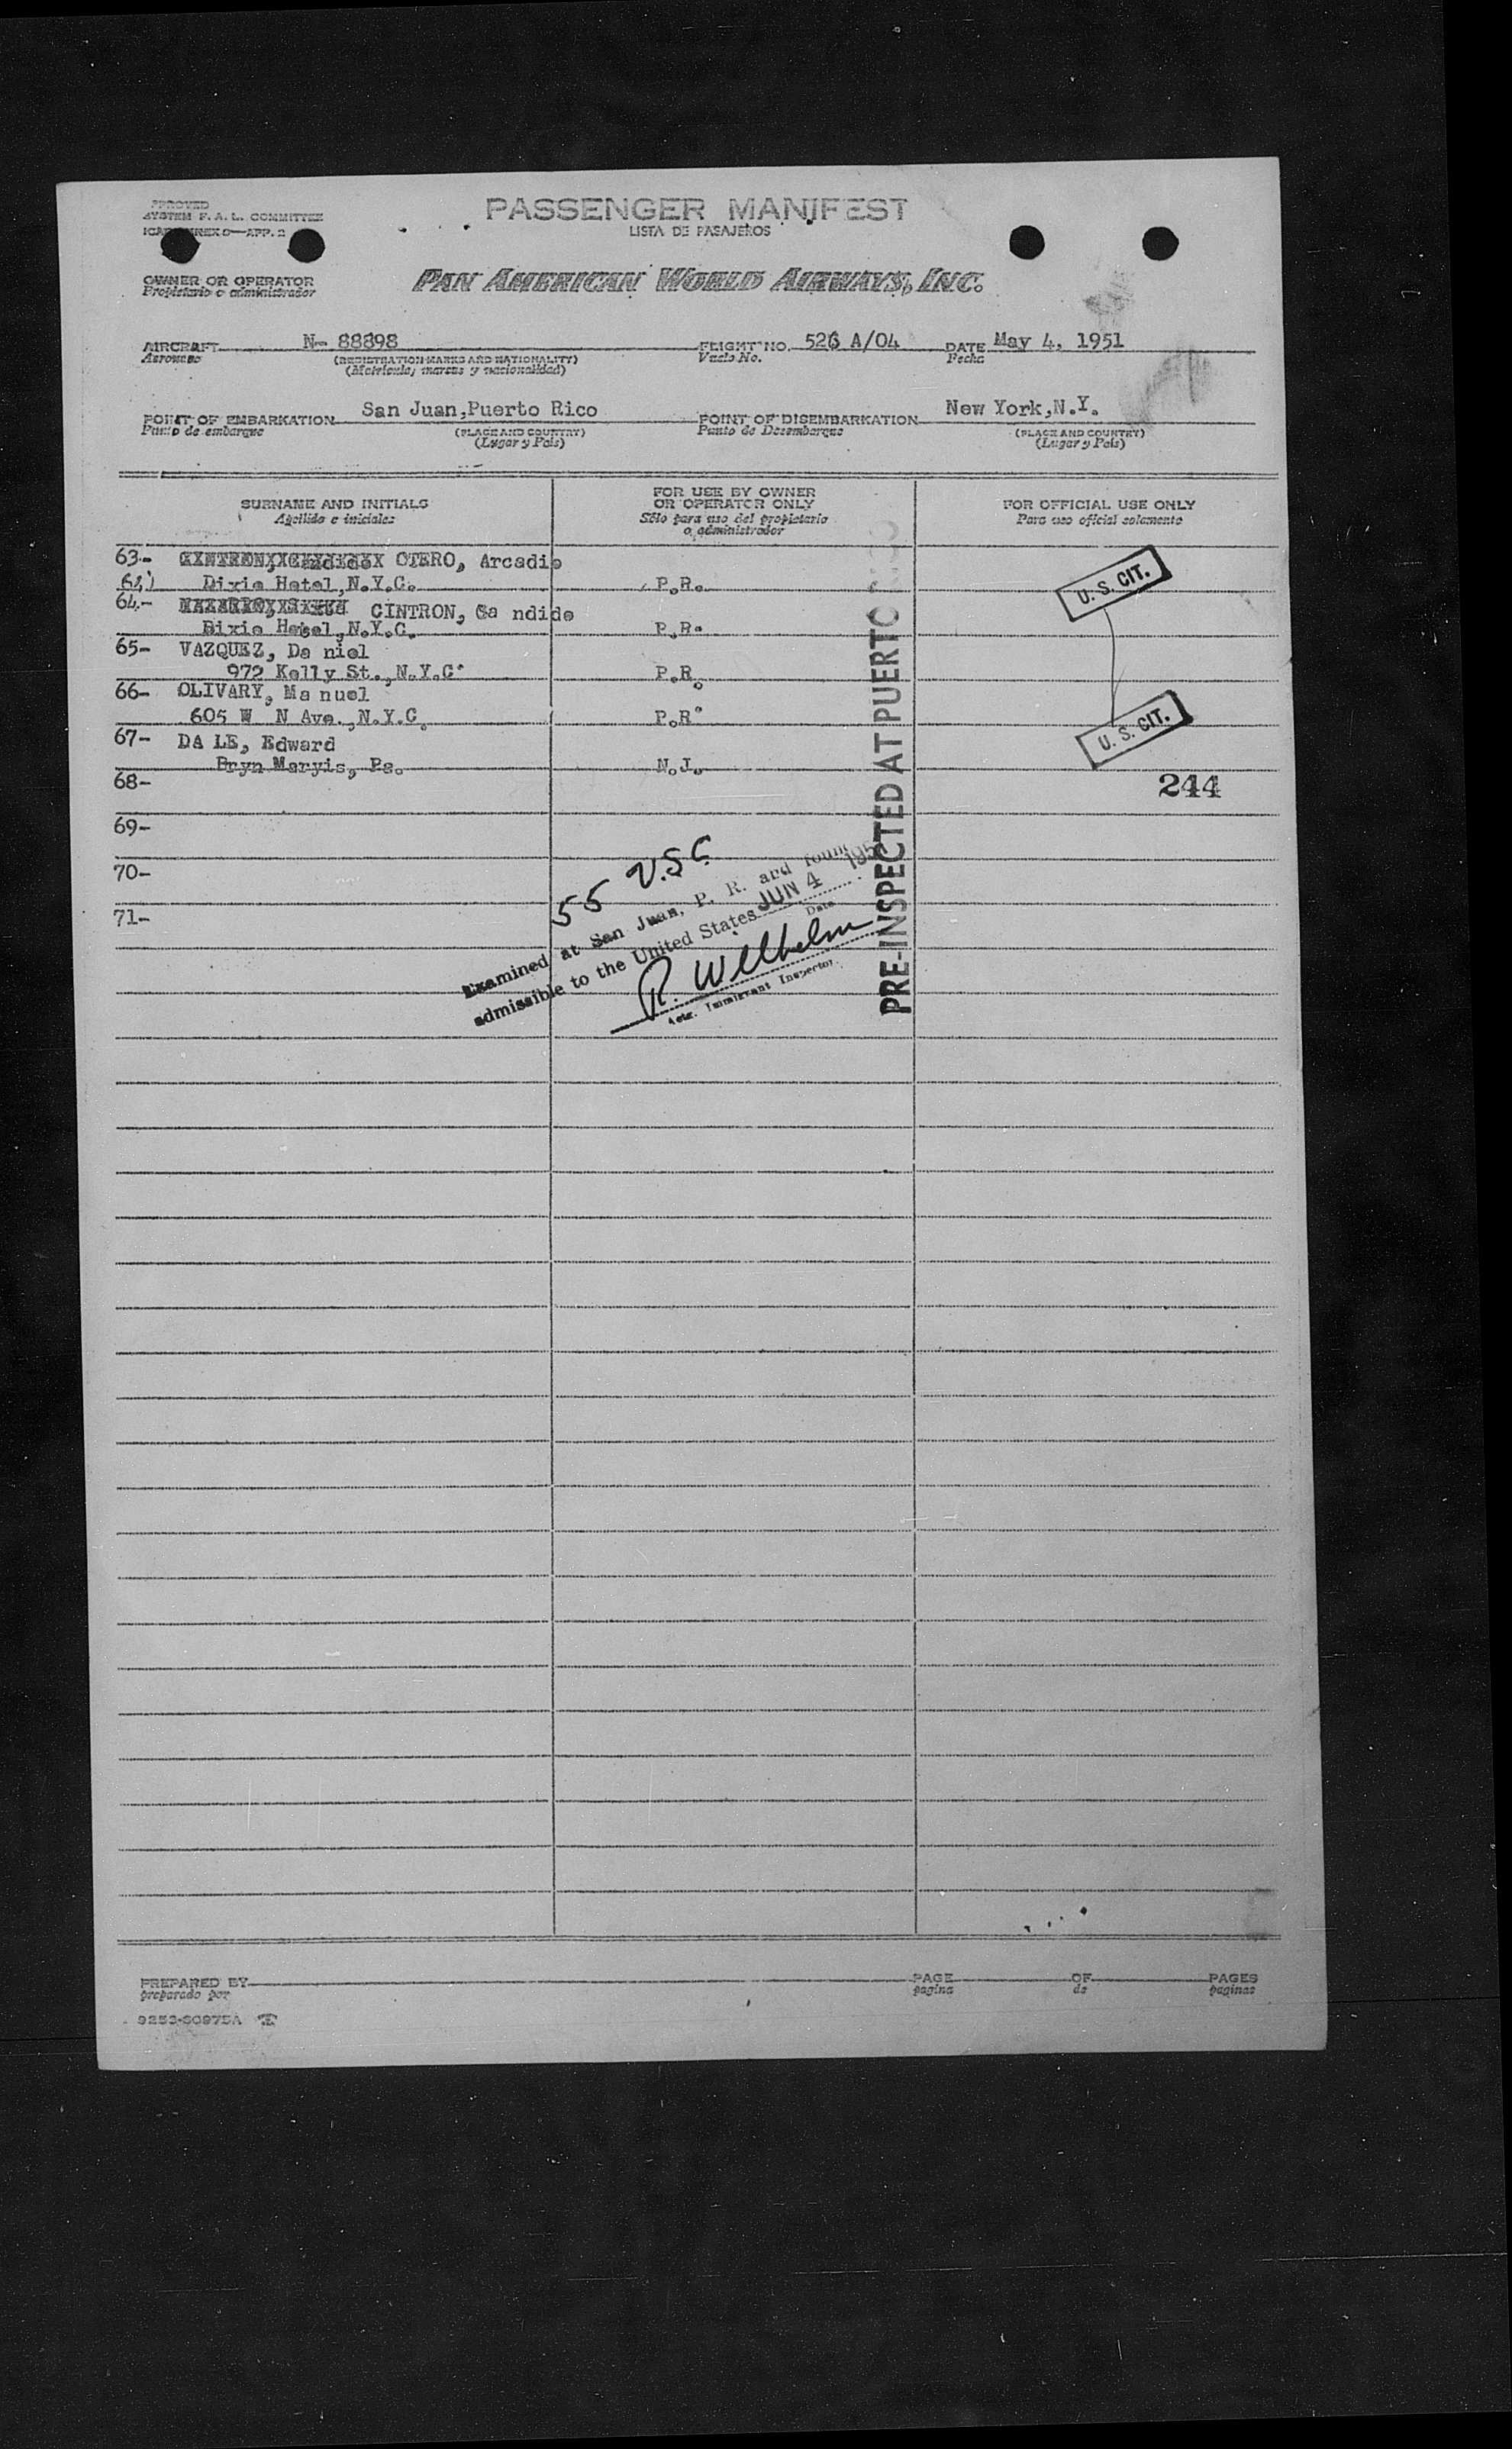 PROVED
SYSTEM F. A. L. COMMITTEE
PASSENGER MANIFEST
LISTA DE PASAJEROS
OWNER OR OPERATOR
Propietario o administrador
PAN AMERICAN WORLD AIRWAYS, INC.
AIRCRAFT N- 88898 FLIGHT NO. 526 A/04 DATE May 4, 1951
Aeronave (REGISTRATION MARKS AND NATIONALITY) Vuelo No. Fecha
(Matricula, marcas y nacionalidad)
POINT OF EMBARKATION San Juan,Puerto Rico POINT OF DISEMBARKATION New York,N.Y.
Punto de embarque (PLACE AND COUNTRY) Punto de Desembarque (PLACE AND COUNTRY)
(Lugar y País) (Lugar y País)
SURNAME AND INITIALS FOR USE BY OWNER OR OPERATOR ONLY FOR OFFICIAL USE ONLY
Apellido e iniciales Sólo para uso del propietario o administrador Para uso oficial solamente
63- OTERO, Arcadio
Dixie Hotel,N.Y.C. P.R.
U. S. CIT.
64- CINTRON, Ca ndido
Dixie Hotel,N.Y.C. P.R.
65- VAZQUEZ, Da niel
972 Kelly St.,N.Y.C. P.R.
66- OLIVARY, Ma nuel
605 W N Ave.,N.Y.C. P.R.
U. S. CIT.
67- DA LE, Edward
Bryn Maryis, Pa. N.J.
68-
244
69-
70-
71-
55 U.S.C
Examined at San Juan, P. R. and found
admissible to the United States JUN 4 195
Date
R. Wilhelm
Immigrant Inspector.
PRE-INSPECTED AT PUERTO RICO
PREPARED BY PAGE OF PAGES
preparado por pagina de paginas
9253-60975A